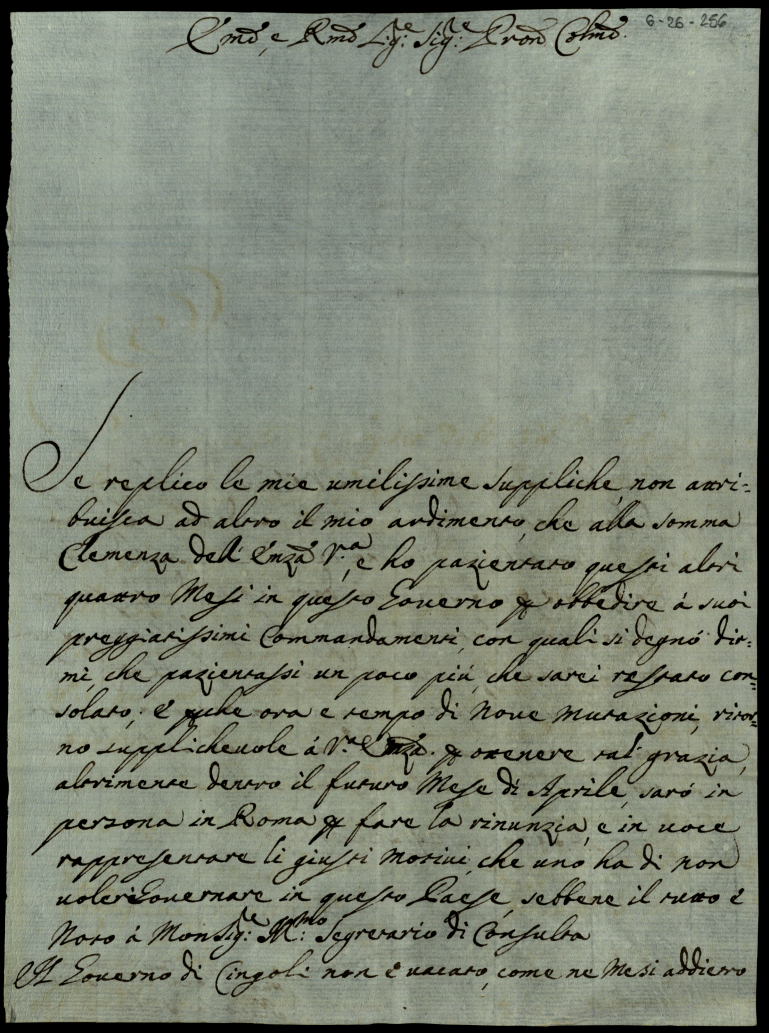 6-26-256
Emõ, e Rmõ Sig:e Sig:e Pronõ Colmõ.
Se replico le mie umilissime suppliche, non attri=
buisca ad altro il mio ardimento, che alla somma
Clemenza dell' Emzã V.ra, e ho pazientato questi altri
quattro Mesi in questo Governo p obbedire á suoi
preggiatissimi Commandamenti, con quali si degnó dir=
mi, che pazientassi un poco piú, che sarei restato con=
solato; e pche ora e tempo di nove mutazioni, ritor=
no supplichevole á V.ra Emzã. p ottenere tal grazia,
altrimente dentro il futuro Mese di Aprile, saró in
persona in Roma p fare la rinunzia, e in voce
rappresentare li giusti motivi, che uno ha di non
voler Governare in questo Paese, sebbene il tutto é
Noto á Monsig:e Segretario di Consulta
Il Governo di Cingoli non é vacato, come ne Mesi addietro